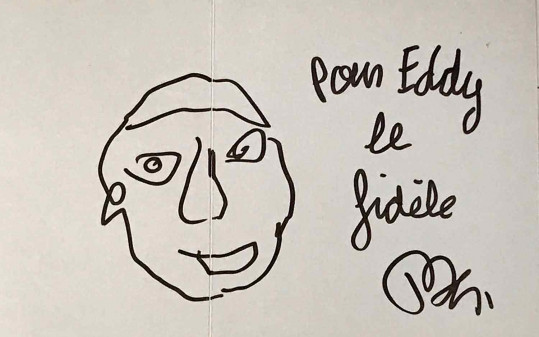 Pour Eddy
le
fidèle